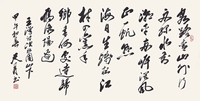 客路青山外行
舟綠水前
潮平兩岸闊風
正一帆懸
海日生殘夜江
春入舊年
鄉書何處達歸
雁洛陽邊
王灣次北固山下
甲午